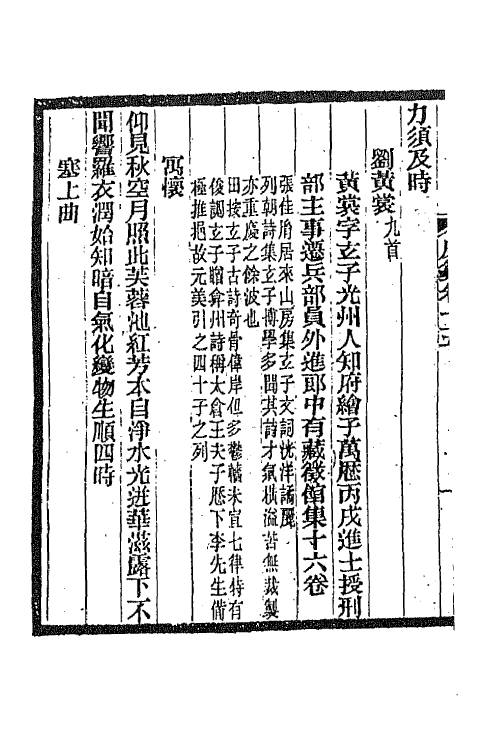 力須及時
劉黃裳九首
黃裳字玄子光州人知府繪子萬歷丙戌進士授刑
部主事遷兵部員外進郎中有藏徵館集十六卷
張佳胤居來山房集玄子文詞洸洋譎麗
列朝詩集玄子博學多聞其詩才氣橫溢苦無裁製
亦重慶之餘波也
田按玄子古詩奇骨偉岸但多鬱轖未宣七律特有
俊調玄子贈弇州詩稱太倉王夫子歷下李先生偕
極推挹故元美引之四十子之列
寓懷
仰見秋空月照此芙蓉池紅芳本自淨水光迸華滋露下不
聞響羅衣潤始知暗自氣化變物生順四時
塞上曲